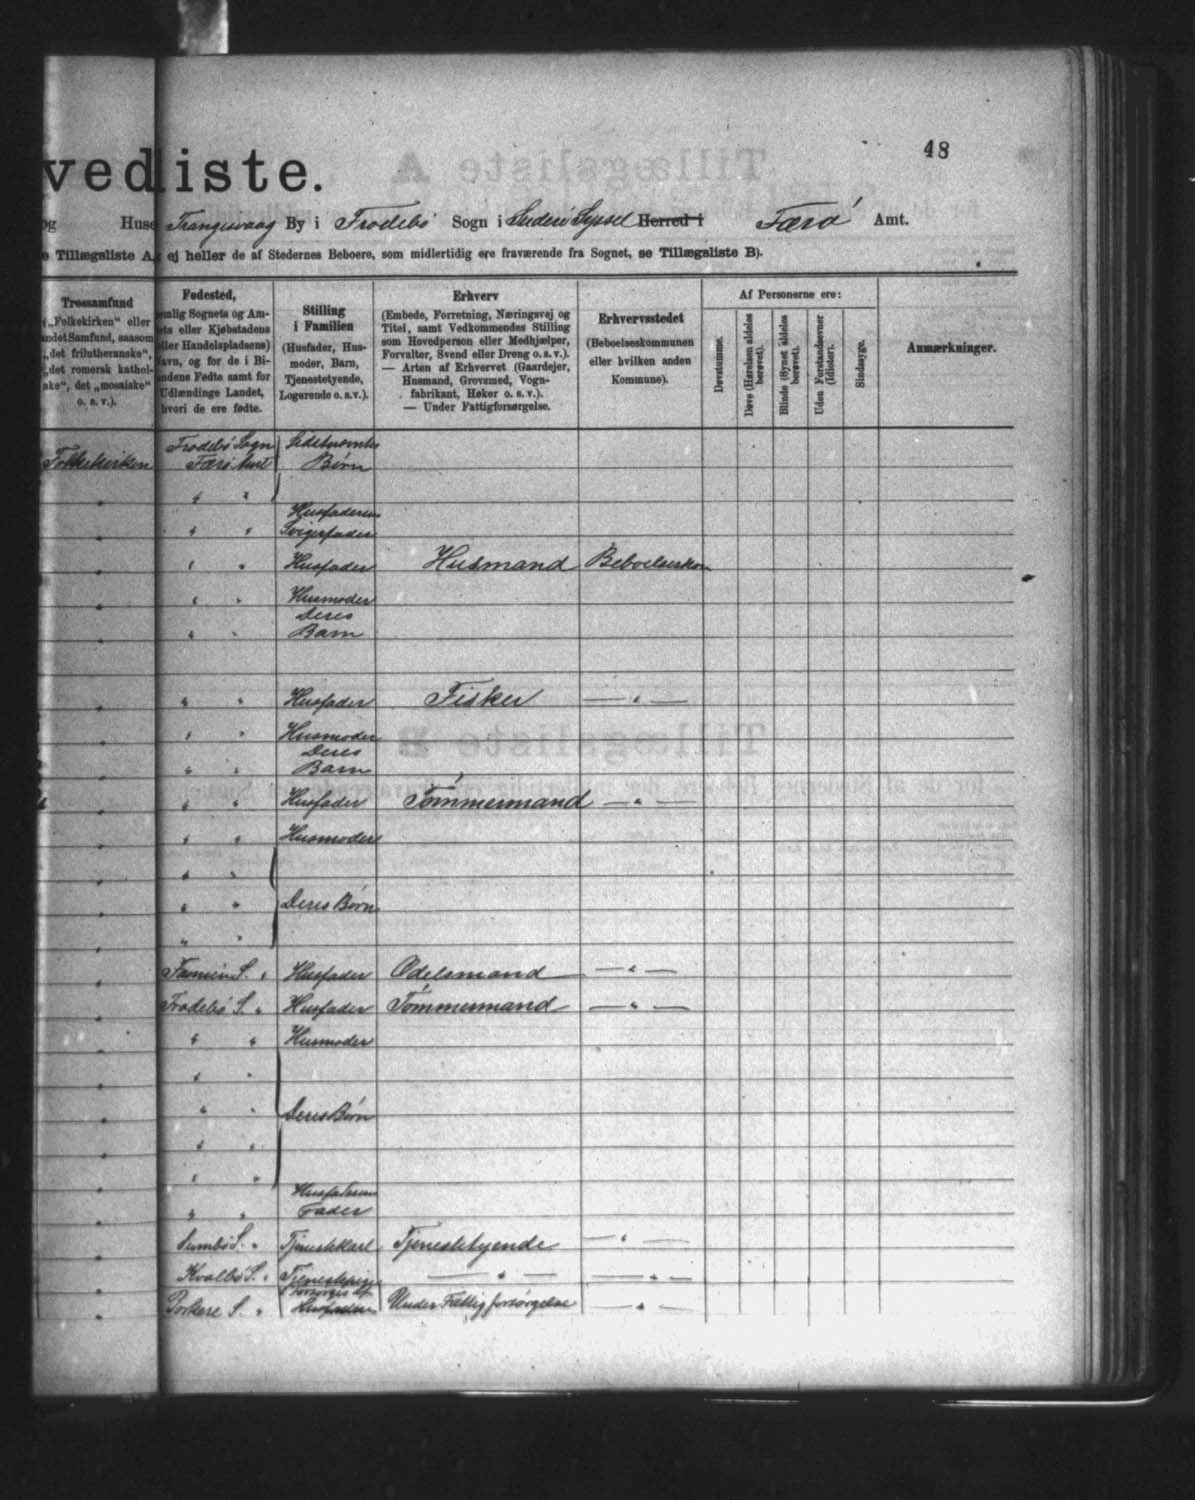 48
vedliste.
og Huse Trangisvaag By i Frodebø Sogn i Suderø Syssel Herred i Færø Amt.
e Tillægsliste A, ej heller de af Stedernes Beboere, som midlertidig ere fraværende fra Sognet, se Tillægsliste B).
Trossamfund
(„Folkekirken“ eller
andet Samfund, saasom
„det frilutheranske“,
„det romersk kathol-
ske“, det „mosaiske“
o. s. v.).
Fødested,
nemlig Sognets og Am-
ets eller Kjøbstadens
eller Handelspladsens)
Navn, og for de i Bi-
landene Fødte samt for
Udlændinge Landet,
hvori de ere fødte.
Stilling
i Familien
(Husfader, Hus-
moder, Barn,
Tjenestetyende,
Logerende o. s. v.).
Erhverv
(Embede, Forretning, Næringsvej og
Titel, samt Vedkommendes Stilling
som Hovedperson eller Medhjælper,
Forvalter, Svend eller Dreng o. s. v.).
— Arten af Erhvervet (Gaardejer,
Husmand, Grovsmed, Vogn-
fabrikant, Høker o. s. v.).
— Under Fattigforsørgelse.
Erhvervsstedet
(Beboelseskommunen
eller hvilken anden
Kommune).
Af Personerne ere:
Døvstumme.
Døve (Hørelsen aldeles
berøvet).
Blinde (Synet aldeles
berøvet).
Uden Forstandsevner
(Idioter).
Sindssyge.
Anmærkninger.
Folkekirken Frodebø Sogn Færø Amt Børn
" " "
" " " Husfaderens Svigerfader
" " " Husfader Husmand Beboelseskom
" " " Husmoder
" " " Deres Barn
"
" " " Husfader Fisker — " —
" " " Husmoder
" " " Deres Barn
" " " Husfader Tømmermand — " —
" " " Husmoder
" " "
" " " Deres Børn
" " "
" Famien S. " Husfader Odelsmand — " —
" Frodebø S. " Husfader Tømmermand — " —
" " " Husmoder
" " "
" " " Deres Børn
" " "
" " "
" " " Husfaderens Fader
" Sumbø S. " Tjenestekarl Tjenestetyende — " —
" Kvalbø S. " Tjenestepige — " — — " —
" Porkere S. " Forsørges af Husfaderen Under Fattigforsørgelse — " —